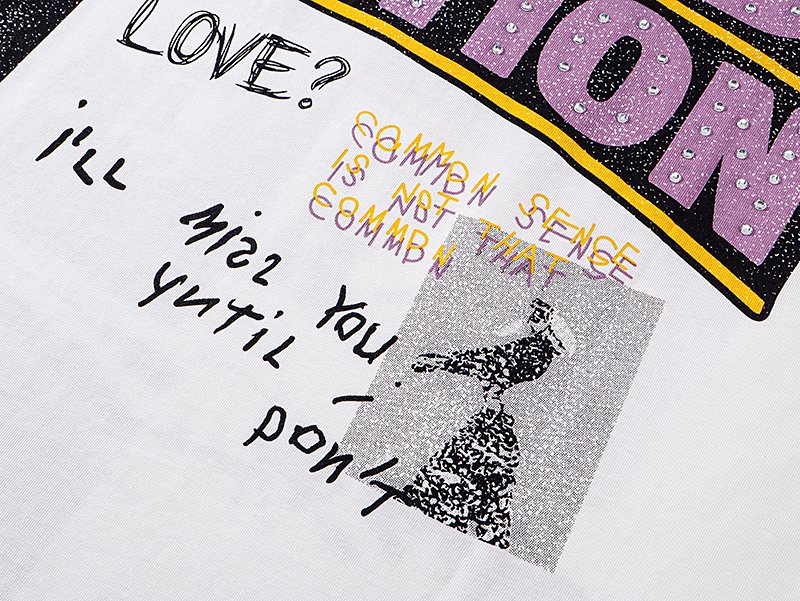 TION
LOVE?
COMMON SENSE
IS NOT THAT
COMMON
I'LL
MISS YOU
UNTIL I
DON'T